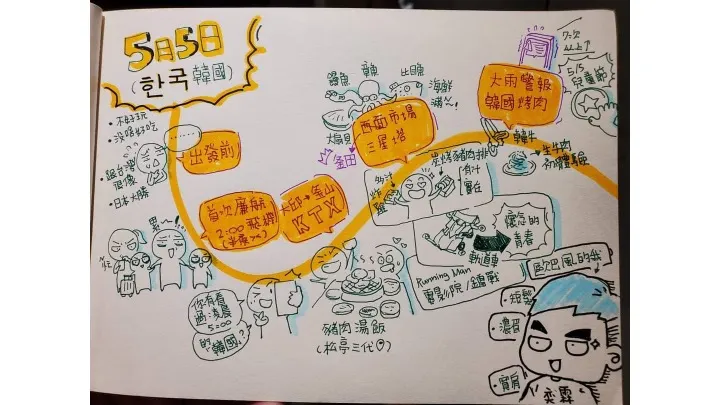 5月5日
(한국 韓國)
・不好玩
・没啥好吃
・跟台灣
很像
・日本大勝
出發前
累~!
首次廉航
2:00飛機
大邱→釜山
KTX
你有看
過凌晨
5:00
的"韓國"?
豬肉湯飯
(松亭三代)
鱷魚
章魚
比目魚
海鮮
滿~!
大扇貝
金田
西面市場
三星塔
多汁
炸雞
炭烤豬肉排
有汁
實在
軌道車
懷念的
青春
Running Man
電影院/鎗戰
7次
以上↑
大雨警報
韓國烤肉
5/5
兒童節
韓牛
生牛肉
初體驗
歐巴風的我
・短髮
・濃眉
・寬肩
奕霖